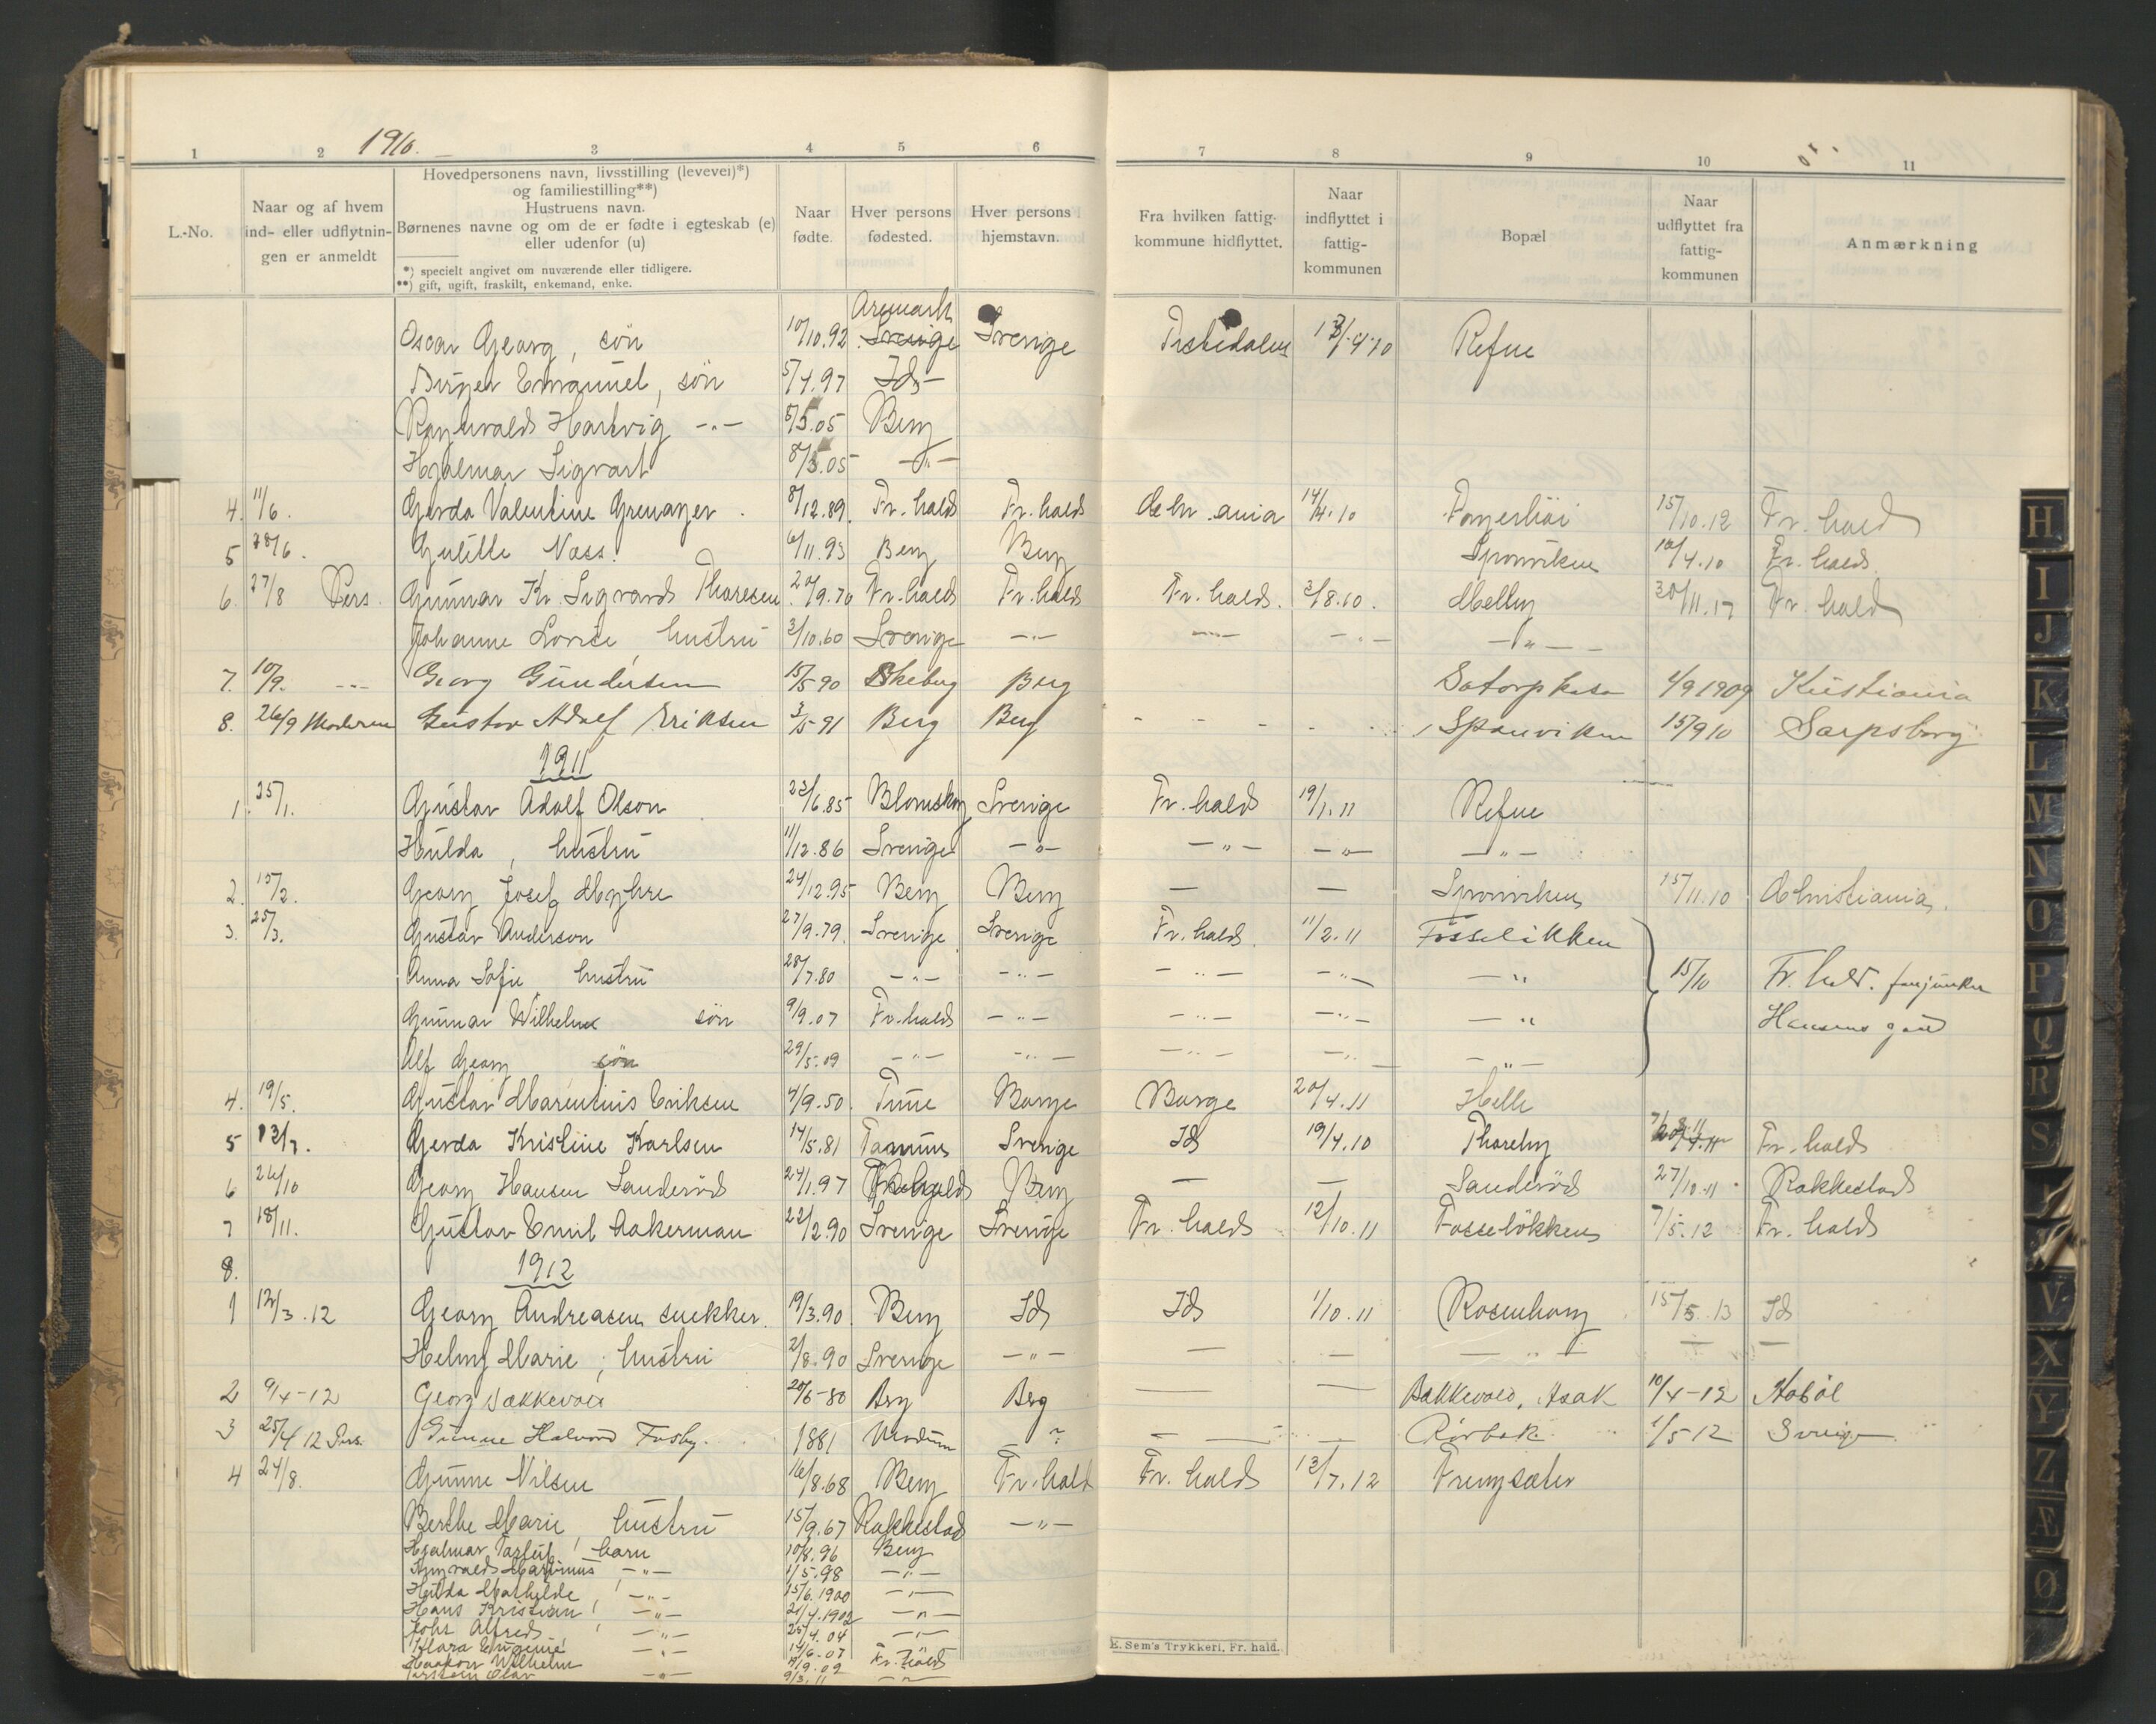 1910.
1 2 3 4 5 6 7 8 9 10 11
L.-No.
Naar og af hvem ind- eller udflytningen er anmeldt
Hovedpersonens navn, livsstilling (levevei)*)
og familiestilling**)
Hustruens navn.
Børnenes navne og om de er fødte i egteskab (e)
eller udenfor (u)
*) specielt angivet om nuværende eller tidligere.
**) gift, ugift, fraskilt, enkemand, enke.
Naar fødte.
Hver persons fødested.
Hver persons hjemstavn.
Fra hvilken fattigkommune hidflyttet.
Naar indflyttet i fattigkommunen
Bopæl
Naar udflyttet fra fattigkommunen
Anmærkning
Aremark
Oscar Georg, sön 10/10.92 Sverige Sverige Tistedalen Refne
Birger Emanuel, sön 5/4.97 Id
Ragnvald Hartvig -"- 8/5.05 Berg
Hjalmar Sigvart 8/5.05 -"-
4. 11/6. Gerda Valentine Grenager. 8/12.89. Fr.hald Fr.hald Chr.ania 14/4.10 Fagerhöi 15/10.12 Fr.hald
5 28/6. Næss. 6/11.93 Berg Berg Sponviken 10/4.10 Fr.hald.
6. 27/8 Pers. Gunnar Kr. Sigvard Thoresen 20/9.70 Fr.hald Fr.hald Fr.hald. 3/8.10. Melby 30/11.17 Fr.hald
Johanne Lovise, hustru 3/10.60 Sverige -"- -"- -"- -"-
7. 10/9. -"- Georg Gundersen 15/5 90 Skeberg Berg 1/9 1909 Kristiania
8. 26/9 Moderen Gustav Adolf Eriksen 3/5 91 Berg Berg - - - Sponviken 15/9 10 Sarpsborg
1911
1. 25/1. Gustav Adolf Olson 23/6.85 Blomskog Sverige Fr.hald 19/1.11 Refne
Hulda, hustru 11/12.86 Sverige -"- -"- -"- -"-
2. 15/2. Georg Josef Myhre 24/12.95 Berg Berg — — Sponviken 15/11.10 Christiania.
3. 25/3. Gustav Anderson 27/9.79. Sverige Sverige Fr.hald. 11/2.11 Fosselökken
Anna Sofie, hustru 28/7.80 -"- -"- -"- -"- -"- 15/10 Fr.hald.
Gunnar Wilhelm sön 9/9.07 Fr.hald -"- -"- -"- -"- Hansens gaard
Alf Georg sön 29/5.09 -"- -"- -"- -"- -"-
4. 19/5. Gustav Marentius Eriksen 4/9.50. Tune Borge Borge 20/4.11 Helle
5 13/7. Gerda Kristine Karlsen 14/5.81 Tanum Sverige Id 19/4.10 Thoreby Fr.hald
6 26/10 Georg Hansen Sanderöd 24/1.97 Fr.hald Berg — — Sanderöd 27/10.11 Rakkestad
7 18/11. Gustav Emil Aakerman 22/2.90 Sverige Sverige Fr.hald 12/10.11 Fosselökken 7/5.12 Fr.hald
8. 1912
1 12/3.12 Georg Andreasen snekker. 19/3.90 Berg Id Id 1/10.11 Rosenborg 15/5.13 Id
Helmy Marie, hustru 2/8.90 Sverige -"- — — -"- — —
2 9/4-12 Georg Bakkevold 20/6-80 Berg Berg — — Bakkevold, Asak 10/4-12 Hobøl
3 25/4 12 Pers. Gunne Halvord Fosby. 1881 ? — — Rörbæk 1/5 12 Sverige
4 24/8. Gunne Nilsen 16/8.68 Berg Fr.hald Fr.hald 13/7.12
Berthe Marie, hustru 15/9.67 Rakkestad -"-
Hjalmar, barn 10/8.96 Berg
Ingvald Martinius -"- 1/5.98 -"-
Hilda Mathilde, -"- 15/6.1900 -"-
Hans Kristian, -"- 21/4.1902 -"-
Johs Alfred, -"- 25/4.04 -"-
Klara Eugenie -"- 14/6.07
Haakon Wilhelm 19/9.09 Fr.hald
Olav -"- 9/3.11 -"-
E. Sem's Trykkeri, Fr. hald.
H
I
J
K
L
M
N
O
P
Q
R
S
V
X
Y
Z
Æ
Ø